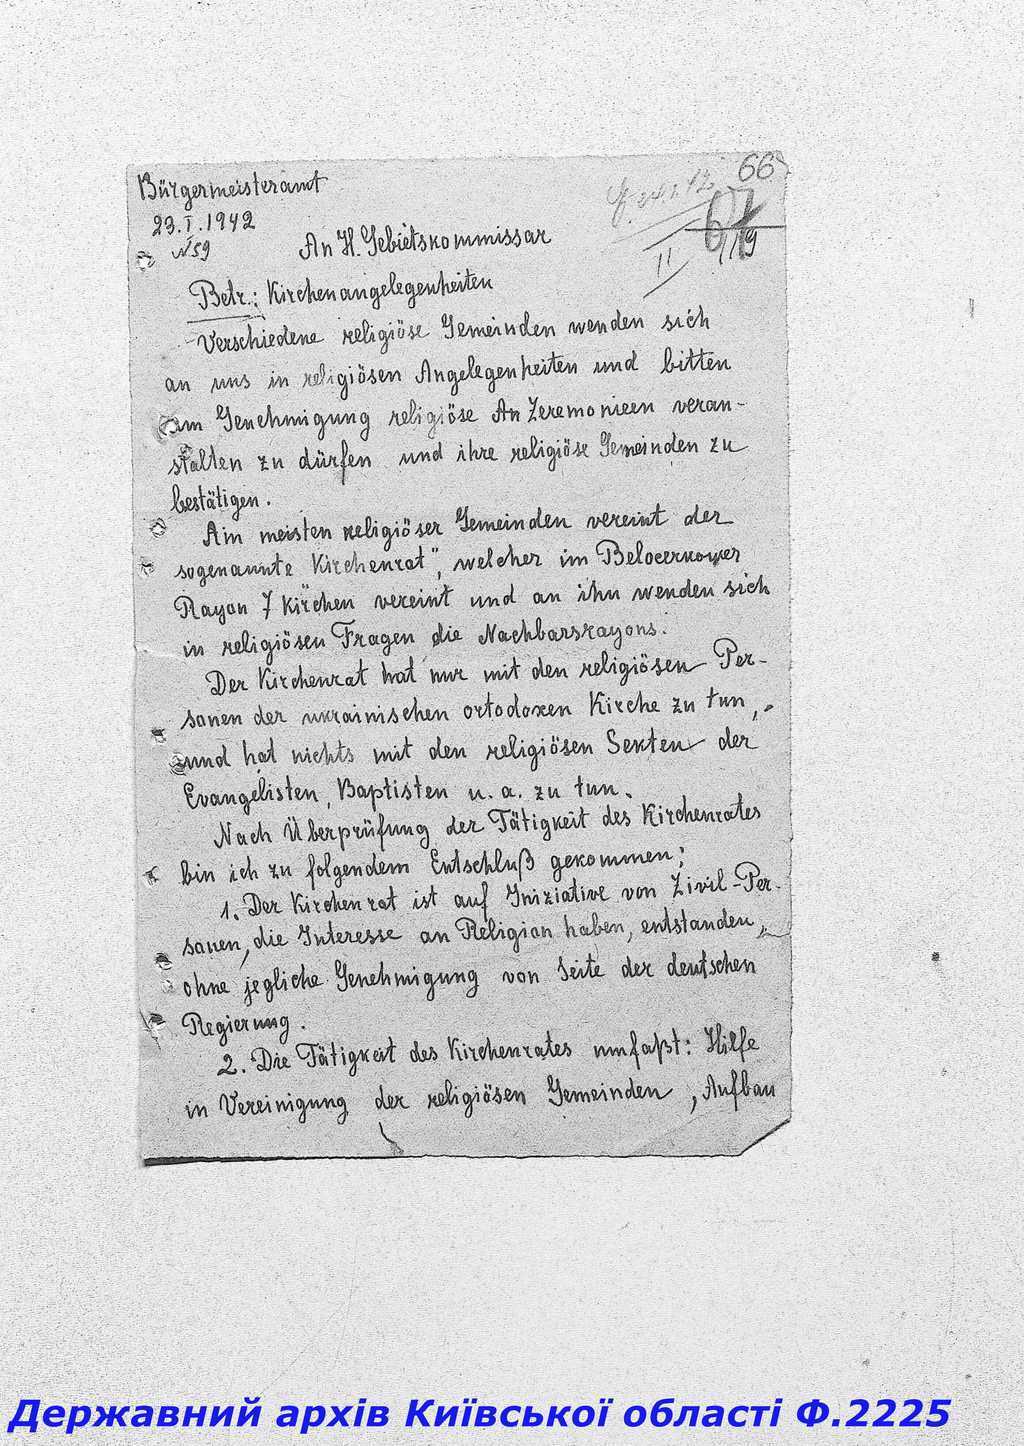 66
Bürgermeisteramt
23.I.1942
N 59
II
67
119
An H. Gebietskommissar
Betr.: Kirchenangelegenheiten
Verschiedene religiöse Gemeinden wenden sich
an uns in religiösen Angelegenheiten und bitten
um Genehmigung religiöse An Zeremonieen veran-
stalten zu dürfen und ihre religiöse Gemeinden zu
bestätigen.
Am meisten religiöser Gemeinden vereint der
sogenannte Kirchenrat", welcher im Belocerkower
Rayon 7 Kirchen vereint und an ihn wenden sich
in religiösen Fragen die Nachbarsrayons.
Der Kirchenrat hat nur mit den religiösen Per-
sonen der ukrainischen ortodoxen Kirche zu tun,
und hat nichts mit den religiösen Sekten der
Evangelisten, Baptisten u. a. zu tun.
Nach Überprüfung der Tätigkeit des Kirchenrates
bin ich zu folgendem Entschluß gekommen:
1. Der Kirchenrat ist auf Iniziative von Zivil-Per-
sonen, die Interesse an Religion haben, entstanden,
ohne jegliche Genehmigung von Seite der deutschen
Regierung.
2. Die Tätigkeit des Kirchenrates umfaßt: Hilfe
in Vereinigung der religiösen Gemeinden, Aufbau
Державний архів Київської області Ф.2225